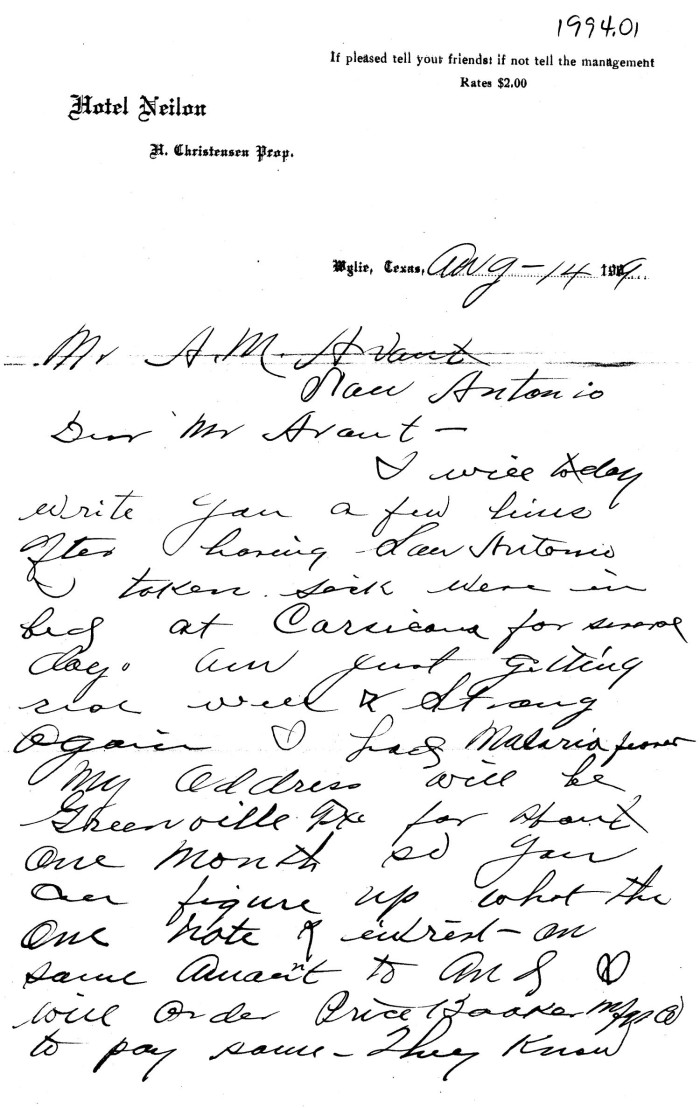 1994.01
If pleased tell your friends: if not tell the management
Rates $2.00
Hotel Neilon
H. Christensen Prop.
Wylie, Texas, Aug - 14 1909
Mr A.M. Avant
San Antonio
Dear Mr Avant -
I will today
write you a few lines
after leaving San Antonio
I token sick were in
bed at Corsicana for several
days am just getting
real well & strong
again I had Malaria fever
My Address will be
Greenville Tx for about
One month so you
can figure up what the
One note & intrest on
same Amount to And I
will order Price Booker Mfg Co
to pay same - They Know